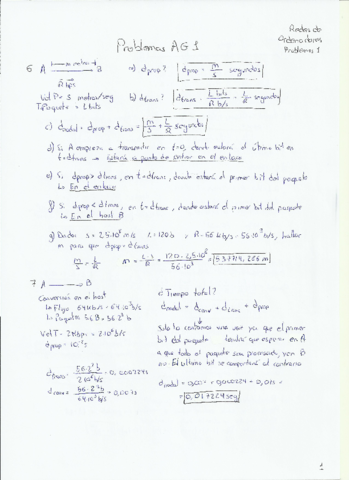 Redes de
Ordenadores
Problemas 1
Problemas AG1
6 A m metros B
R bps
Vel P = s metros/seg
TPaquete = L bits
a) dprop? dprop = m/s segundos
b) dtrans? dtrans = L bits / R b/s = L/R segundos
c) dnodal = dprop + dtrans = m/s + L/R segundos
d) Si A empieza a transmitir en t=0, donde estará el último bit en
t=dtrans → Estaría a punto de entrar en el enlace
e) Si dprop > dtrans, en t=dtrans, donde estará el primer bit del paquete
En el enlace
f) Si dprop < dtrans, en t=dtrans, donde estará el primer bit del paquete
En el host B
g) Dados s = 2,5·10⁸ m/s L = 120b R = 56 kb/s = 56·10³ b/s, hallar
m para que dprop = dtrans
m/s = L/R m = L·s/R = 120·2,5·10⁸ / 56·10³ =
7 A → B
Conversión en el host
Flujo 64kb/s = 64·10³ b/s
Paquetes 56B = 56·2³ b
Vel T = 2Mbps = 2·10⁶ b/s
dprop = 10
dtrans = 56·2³ b / 2·10⁶ b/s = 0,000224s
dconv = 56·2³ b / 64·10³ b/s = 0,007s
¿Tiempo total?
dnodal = dconv + dtrans + dprop
Solo lo contamos una vez ya que el primer
bit del paquete tendrá que esperar en A
a que todo el paquete sea procesado, y en B
el último bit se comportará al contrario
dnodal = 0,007 + 0,000224 + 0,01 =
= 0,017224 seg
1